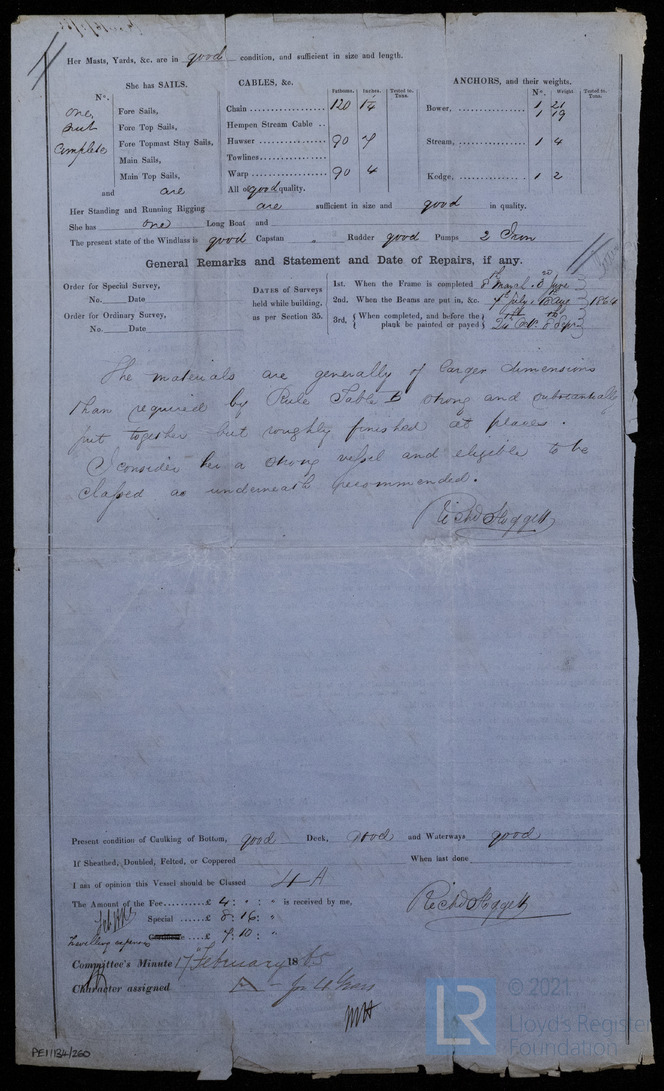 Her Masts, Yards, &c. are in good condition, and sufficient in size and length.
She has SAILS. CABLES, &c. Fathoms. Inches. Tested to Tons. ANCHORS, and their weights. Nº. Weight Tested to Tons.
Nº.
one Fore Sails, Chain 120 Bower, 1 21
1 19
suit Fore Top Sails, Hempen Stream Cable
Complete Fore Topmast Stay Sails, Hawser 90 7 Stream, 1 4
Main Sails, Towlines
Main Top Sails, Warp 90 4 Kedge, 1 2
and are All of good quality.
Her Standing and Running Rigging are sufficient in size and good in quality.
She has one Long Boat and
The present state of the Windlass is good Capstan " Rudder good Pumps 2 Iron
General Remarks and Statement and Date of Repairs, if any.
Order for Special Survey,
No. Date
Order for Ordinary Survey,
No. Date
DATES of Surveys
held while building,
as per Section 35.
1st. When the Frame is completed
2nd. When the Beams are put in, &c. 1864
3rd. { When completed, and before the
plank be painted or payed }
The materials are generally of larger dimensions
than required by Rule Table B strong and substantially
put together but roughly finished at places.
I consider her a strong vessel and eligible to be
classed as underneath recommended.
Richd Hoggett
Present condition of Caulking of Bottom, good Deck, good and Waterways good
If Sheathed, Doubled, Felted, or Coppered When last done
I am of opinion this Vessel should be Classed 4 A
The Amount of the Fee £ 4 : " : " is received by me, Richd Hoggett
Special £ 8 : 16 : "
Travelling expenses £ 7 : 10 : "
Committee's Minute 17 February 1865
Character assigned A
MH
PE11134/260
LR
© 2021
Lloyd's Register
Foundation